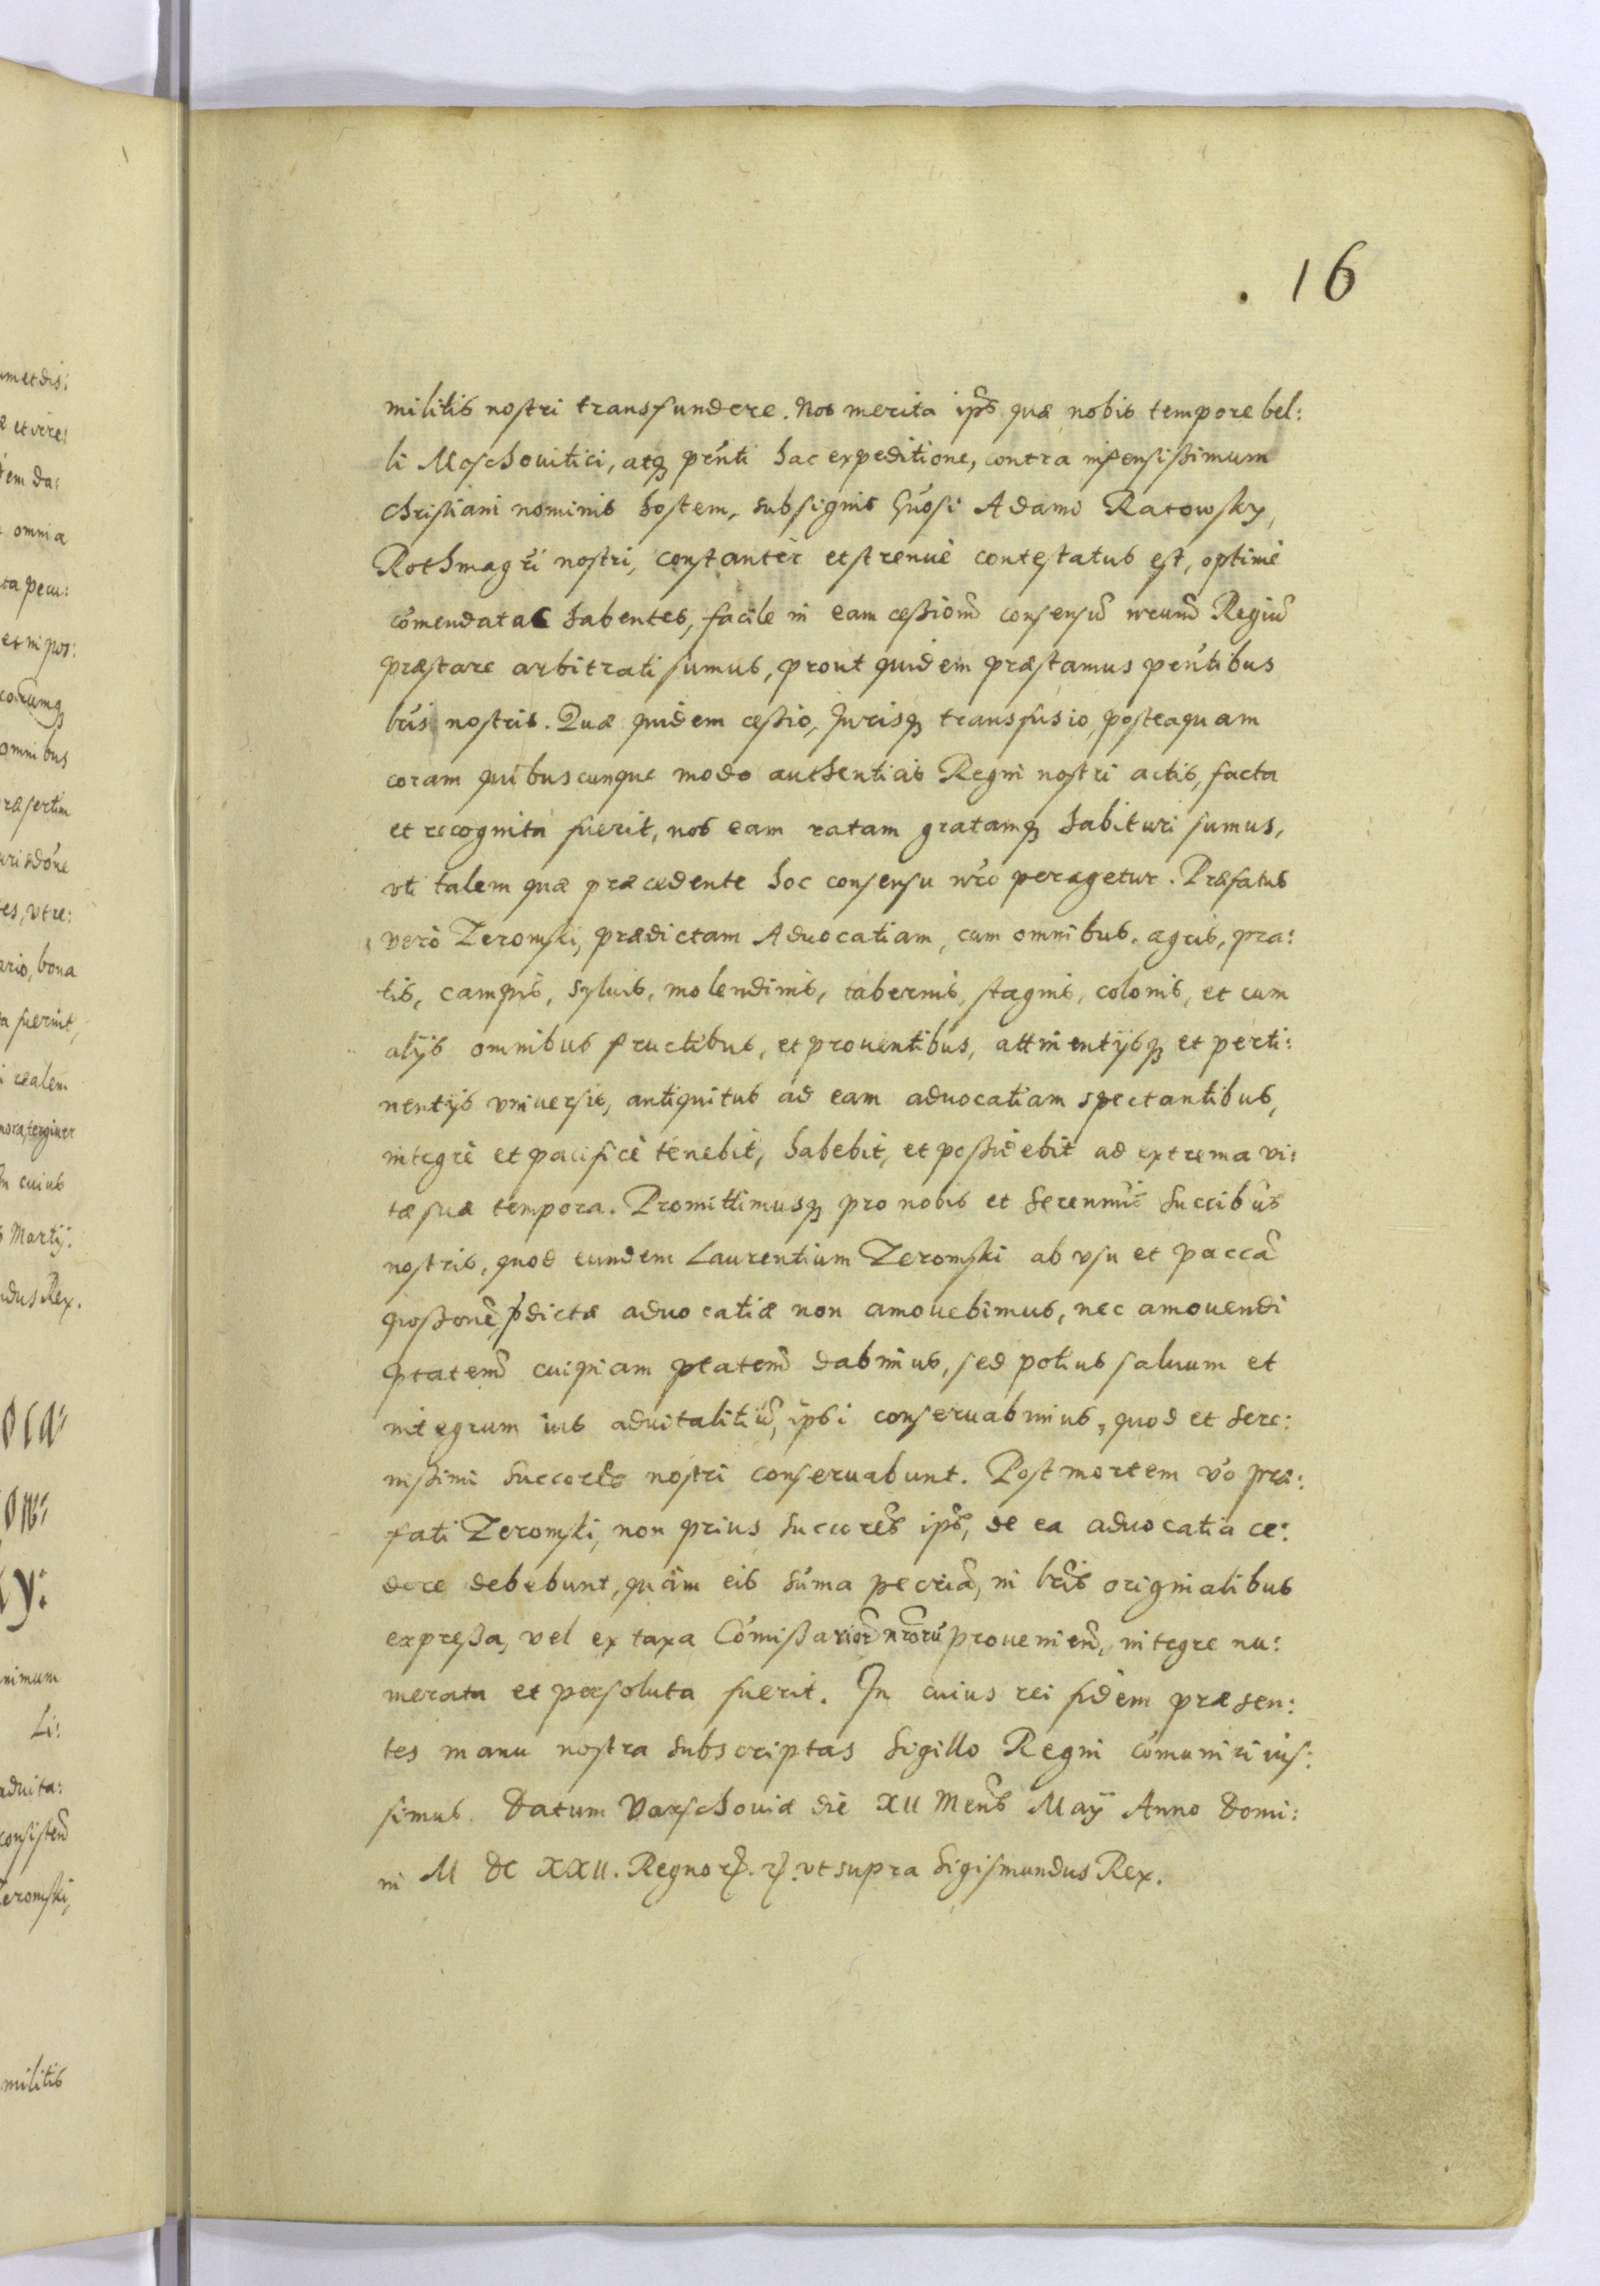 16
militis nostri transfundere. Nos merita ips̃ quæ nobis tempore bel:
li Moschouitici, atq₃ pñti hac expeditione, contra infensissimum
christiani nominis hostem, sub signis Gñosi Adami Ratowsky,
Rothmagr̃i nostri, constanter et strenuè contestatus est, optimè
com̃endatas habentes, facile in eam cessionẽ consensũ Regiũ
præstare arbitrati sumus, prout quidem præstamus pñtibus
lr̃is nostris. Quæ quidem cessio, Jurisq₃ transfusio, posteaquam
coram quibuscunque modo authenticis Regni nostri actis, facta
et recognita fuerit, nos eam ratam gratamq₃ habituri sumus,
vti talem quæ præcedente hoc consensu nr̃o peragetur. Præfatus
verò Zeromski, prædictam Aduocatiam, cum omnibus, agris, pra:
tis, campis, syluis, molendinis, tabernis, stagnis, colonis, et cum
alijs omnibus fructibus, et prouentibus, attinentijsq₃ et perti:
nentijs vniuersis, antiquitus ad eam aduocatiam spectantibus,
integrè et pacificè tenebit, habebit, et possidebit ad extrema vi:
tæ suæ tempora. Promittimusq₃ pro nobis et Serenm̃is Succribũs
nostris, quod eundem Laurentium Zeromski ab vsu et paccã
possonẽ, p̃dictæ aduocatiæ non amouebimus, nec amouendi
ptatem̃ cuipiam ptatem̃ dabimus, sed potius saluum et
integrum ius aduitalitiũ, ipsi conseruabimus, quod et Sere:
nissimi Succorẽs nostri conseruabunt. Post mortem vo præ:
fati Zeromski, non prius Succorẽs ips̃, de ea aduocatia ce:
dere debebunt, quàm eis sum̃a pecriã, in lr̃is originalibus
expressa, vel ex taxa Com̃issariorũ nrorũ prouenien̄, integre nu:
merata et persoluta fuerit. In cuius rei fidem præsen:
tes manu nostra subscriptas Sigillo Regni com̃uniri ius:
simus. Datum Varschouiæ die XII Mens̃ Maÿ Anno Domi:
ni M DC XXII. Regnor₄. r₄. vt supra Sigismundus Rex.